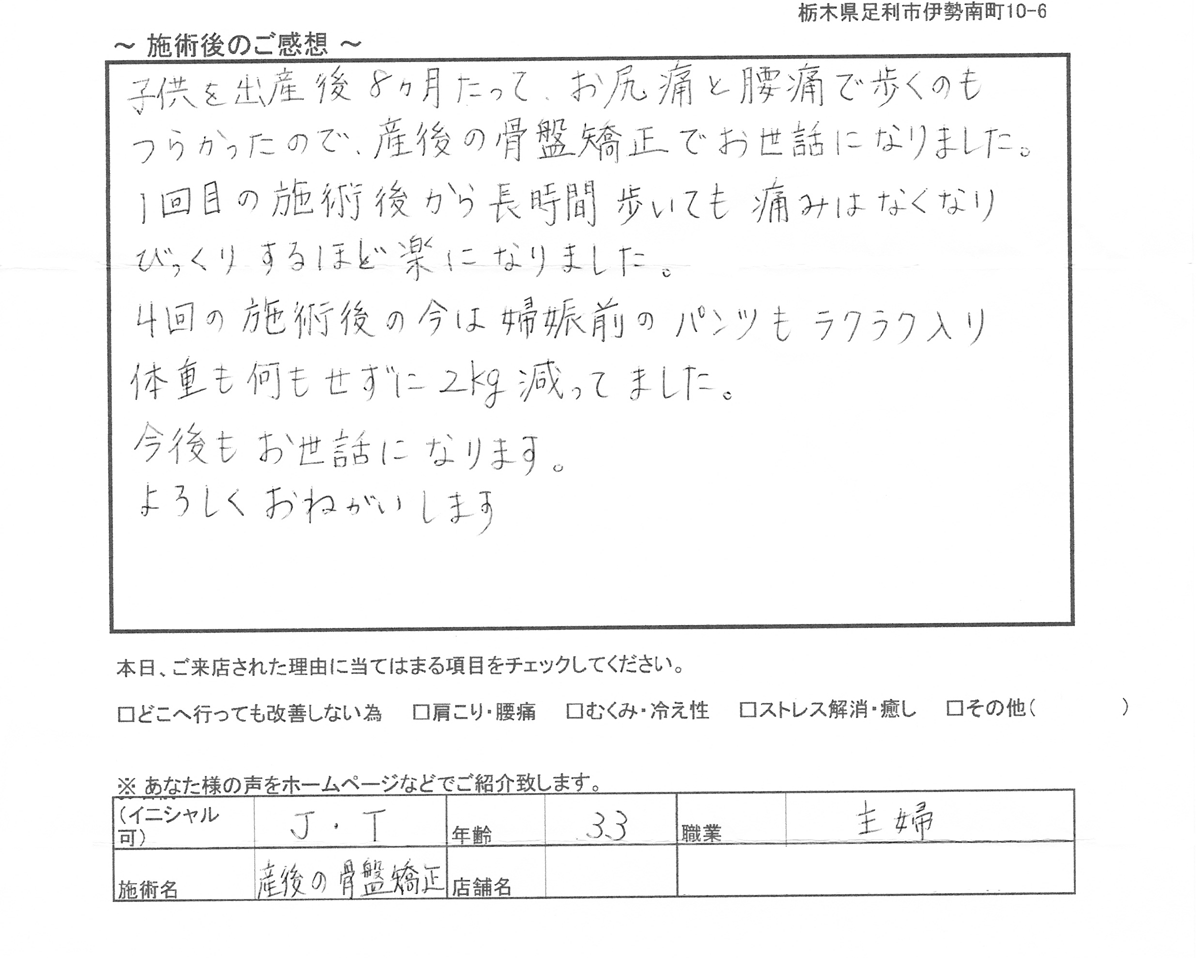 栃木県足利市伊勢南町10-6
～ 施術後のご感想 ～
子供を出産後8ヶ月たって、お尻痛と腰痛で歩くのも
つらかったので、産後の骨盤矯正でお世話になりました。
1回目の施術後から長時間歩いても痛みはなくなり
びっくりするほど楽になりました。
4回の施術後の今は婦娠前のパンツもラクラク入り
体重も何もせずに2kg減ってました。
今後もお世話になります。
よろしくおねがいします
本日、ご来店された理由に当てはまる項目をチェックしてください。
□どこへ行っても改善しない為 □肩こり・腰痛 □むくみ・冷え性 □ストレス解消・癒し □その他( )
※ あなた様の声をホームページなどでご紹介致します。
(イニシャル可) J・T 年齢 33 職業 主婦
施術名 産後の骨盤矯正 店舗名